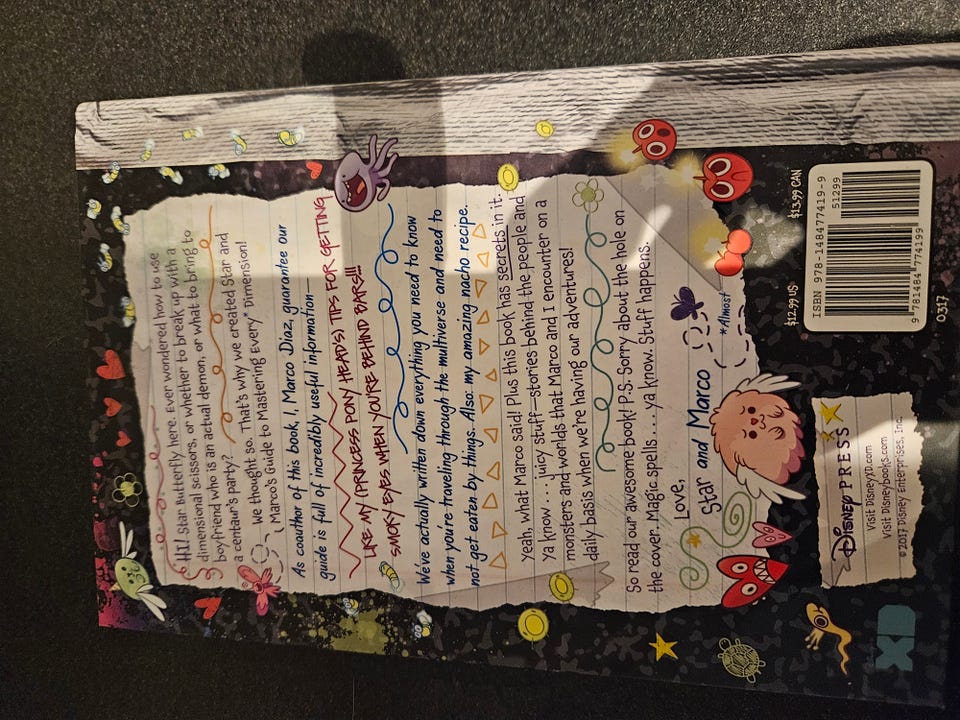 Hi! Star Butterfly here. Ever wondered how to use
dimensional scissors, or whether to break up with a
boyfriend who is an actual demon, or what to bring to
a centaur's party?
We thought so. That's why we created Star and
Marco's Guide to Mastering Every* Dimension!
As coauthor of this book, I, Marco Diaz, guarantee our
guide is full of incredibly useful information—
LIKE MY (PRINCESS PONY HEAD'S) TIPS FOR GETTING
SMOKY EYES WHEN YOU'RE BEHIND BARS!!!
We've actually written down everything you need to know
when you're traveling through the multiverse and need to
not get eaten by things. Also: my amazing nacho recipe.
Yeah, what Marco said! Plus this book has secrets in it.
Ya know . . . juicy stuff—stories behind the people and
monsters and worlds that Marco and I encounter on a
daily basis when we're having our adventures!
So read our awesome book! P.S. Sorry about the hole on
the cover. Magic spells . . . ya know. Stuff happens.
Love,
Star and Marco
*Almost
DISNEY PRESS
Visit DisneyXD.com
Visit Disneybooks.com
©2017 Disney Enterprises, Inc.
$12.99 US
$13.99 CAN
ISBN 978-1-48477419-9
51299
9 781484 774199
0317
Disney XD